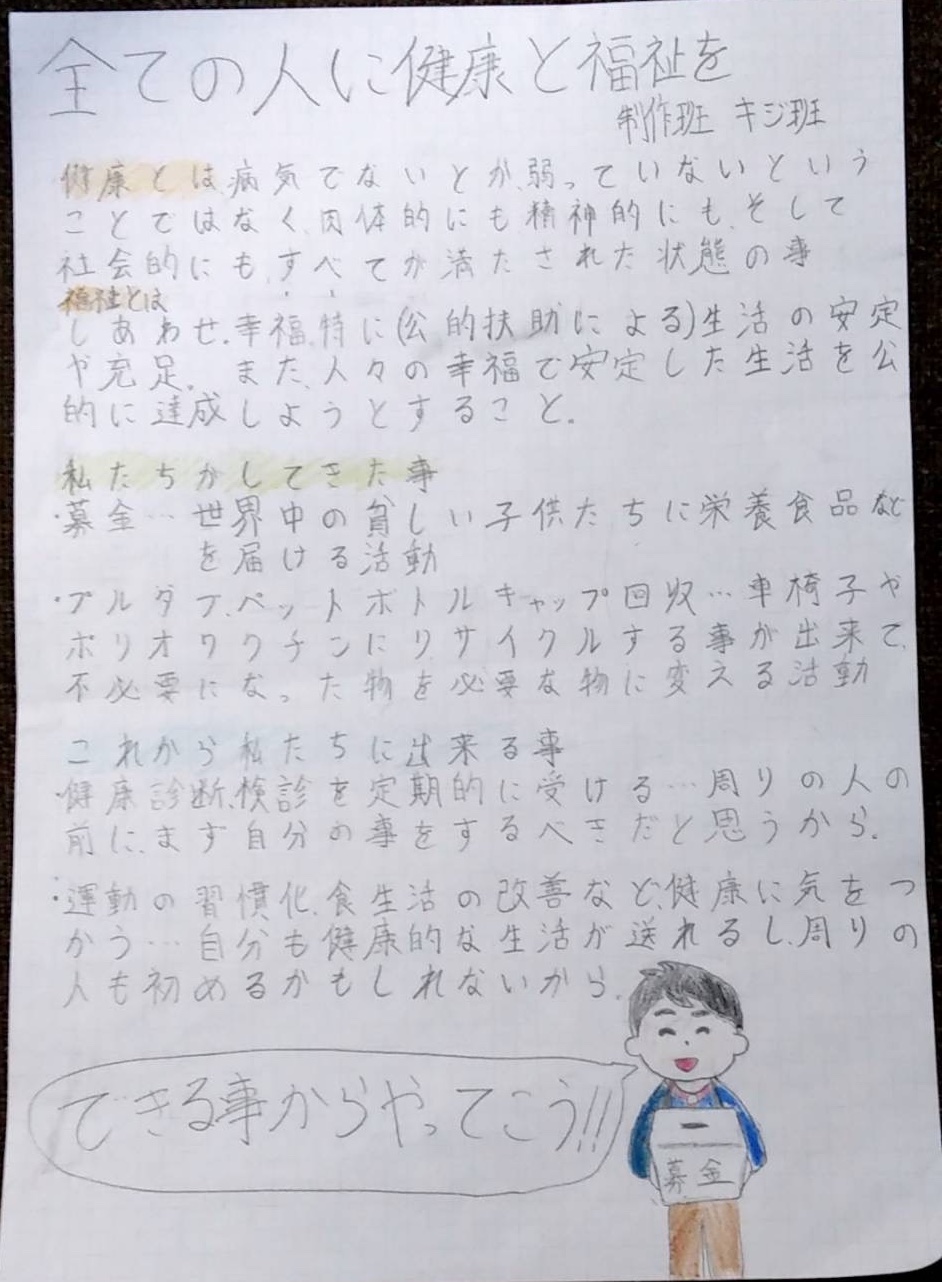 全ての人に健康と福祉を
制作班 キジ班
健康とは、病気でないとか、弱っていないという
ことではなく、肉体的にも精神的にも、そして
社会的にも、すべてが満たされた状態の事
福祉とは
しあわせ。幸福。特に(公的扶助による)生活の安定
や充足。また、人々の幸福で安定した生活を公
的に達成しようとすること。
私たちがしてきた事
・募金…世界中の貧しい子供たちに栄養食品など
を届ける活動
・プルタブ、ペットボトルキャップ回収…車椅子や
ポリオワクチンにリサイクルする事が出来て、
不必要になった物を必要な物に変える活動
これから私たちに出来る事
・健康診断、検診を定期的に受ける…周りの人の
前に、まず自分の事をするべきだと思うから。
・運動の習慣化、食生活の改善など、健康に気をつ
かう…自分も健康的な生活が送れるし、周りの
人も初めるかもしれないから。
できる事からやってこう!!
募金